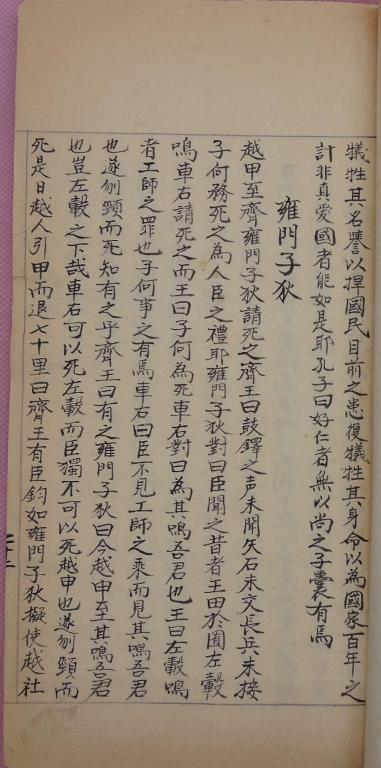 犧牲其名譽以捍國民目前之患復犧牲其身命以為國家百年之
計非真愛國者能如是耶孔子曰好仁者無以尚之子囊有焉
雍門子狄
越甲至齊雍門子狄請死之齊王曰鼓鐸之声未聞矢石未交長兵未接
子何務死之為人臣之禮耶雍門子狄對曰臣聞之昔者王田於囿左轂
鳴車右請死之而王曰子何為死車右對曰為其鳴吾君也王曰左轂鳴
者工師之罪也子何事之有焉車右曰臣不見工師之乘而見其鳴吾君
也遂刎頸而死知有之乎齊王曰有之雍門子狄曰今越甲至其鳴吾君
也豈左轂之下哉車右可以死左轂而臣獨不可以死越甲也遂刎頸而
死是日越人引甲而退七十里曰齊王有臣鈞如雍門子狄擬使越社
二十二